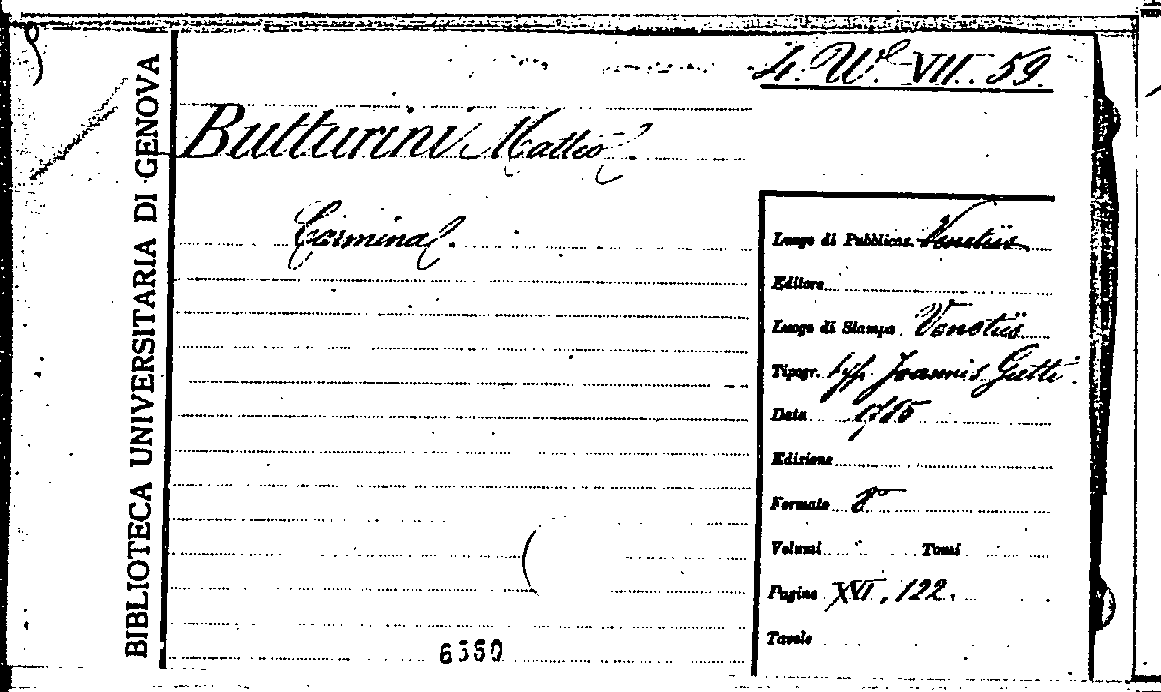 BIBLIOTECA UNIVERSITARIA DI GENOVA
4. W. VII. 59.
Butturini Matteo
Carmina.
Luogo di Pubblicaz. Venetiis
Editore
Luogo di Stampa Venetiis
Tipogr. typ. Joannis Gatti
Data 1785
Edizione
Formato 8°
Volumi Tomi
Pagine XVI, 122.
Tavole
6380